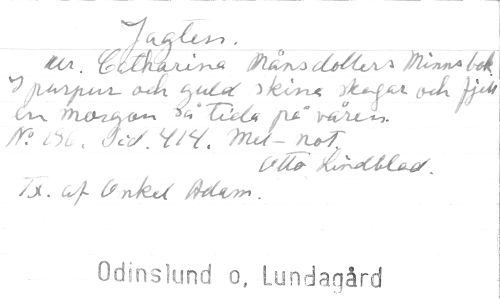 Jagten.
ur. Catharina Månsdotters Minnsbok.
I purpur och guld skina skogar och fjell
en morgon så tida på våren.
No. 196. Sid. 414. Mel- not.
Otto Lindblad.
Tx. af Onkel Adam.
Odinslund o, Lundagård